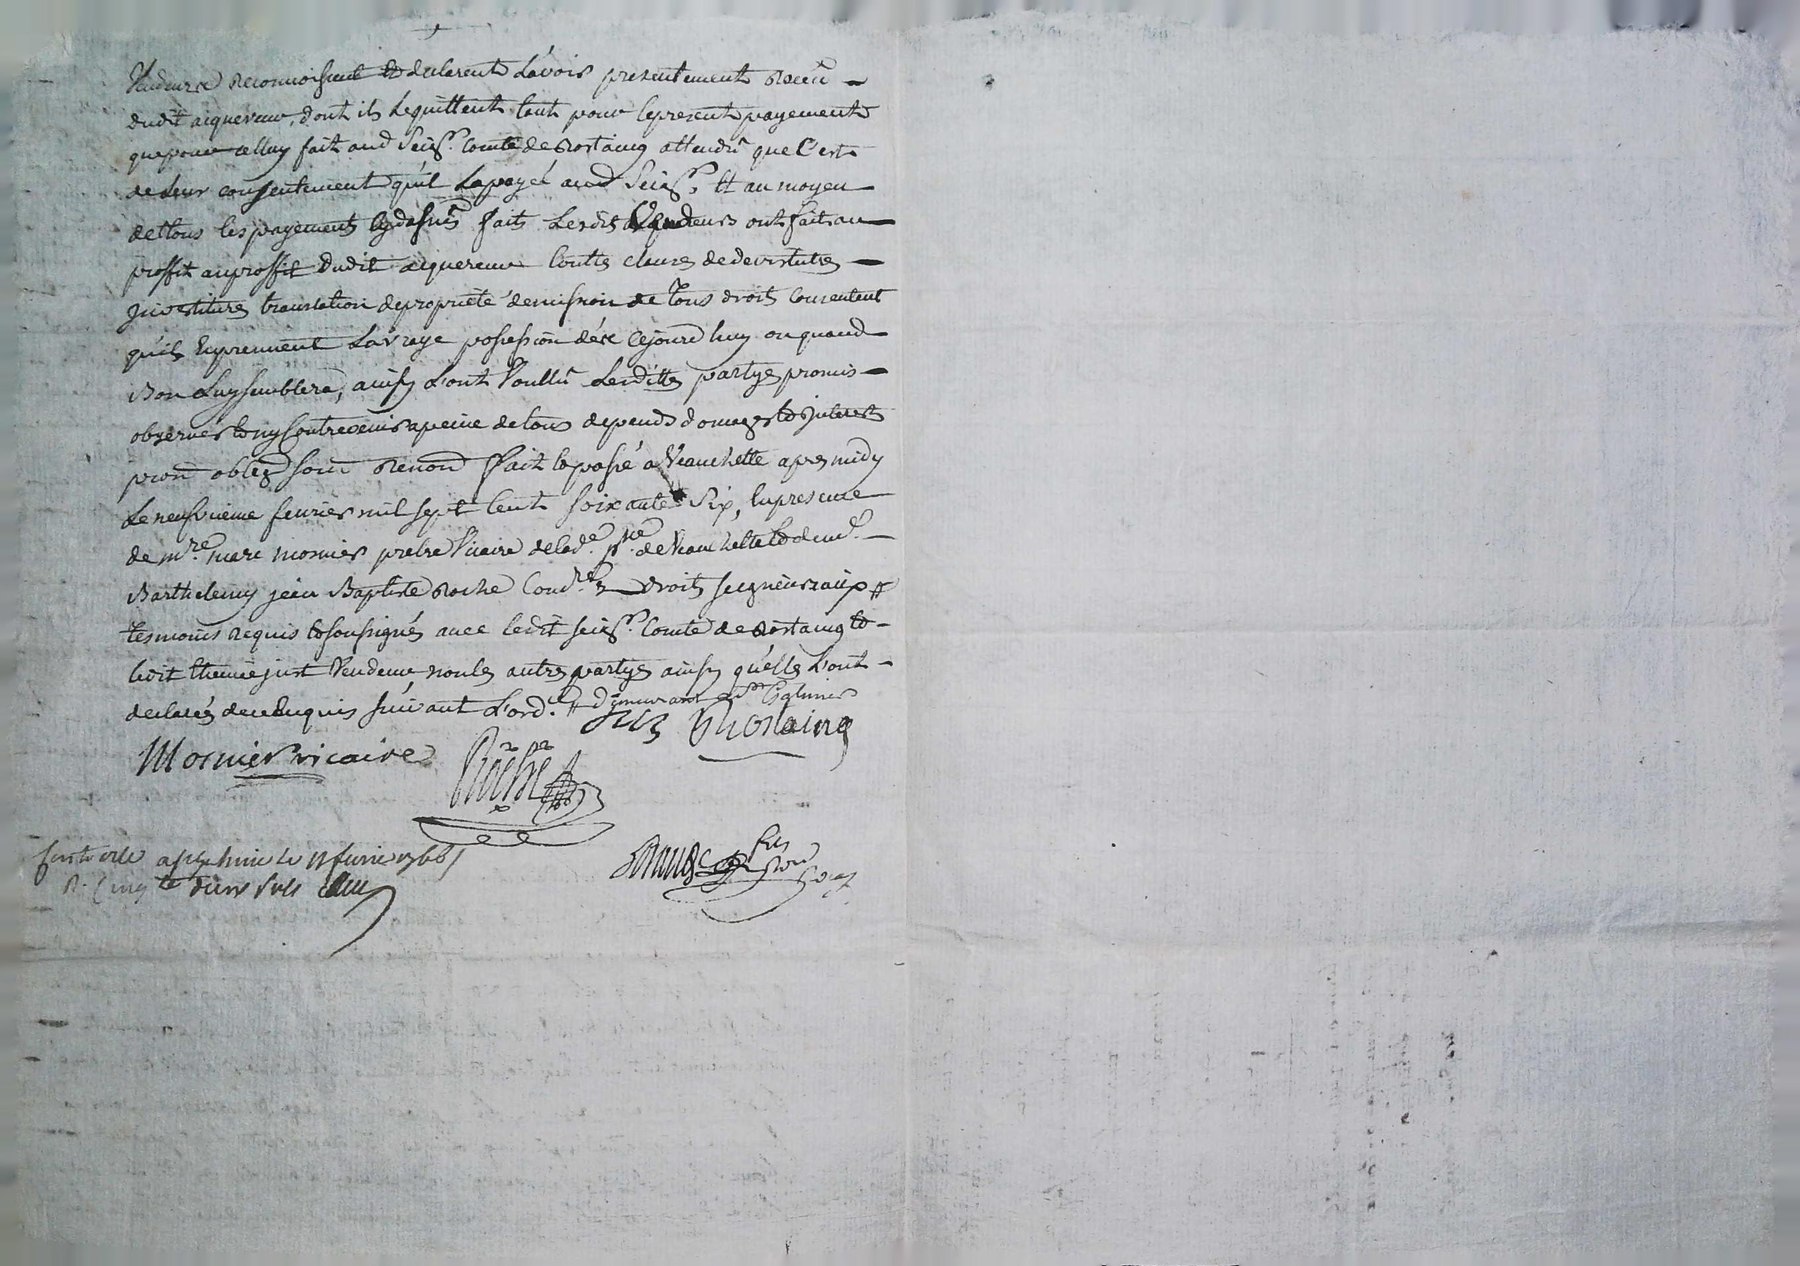 Vendeurs reconnoissent et declarent l'avoir presentement receu
dudit acquereur, dont ils le quittent tant pour le present payement
que pour celluy fait aud Seigr. Comte de Rostaing attendu que c'est
de leur consentement qu'il la payé aud Seigr. Et au moyen
de tous les payements cydessus faits lesdits Vendeurs ont fait au
proffit au proffit dudit acquereur touttes clauses de devestiture
Investiture translation de proprieté demission de tous droits consentent
qu'il en prennent la vraye possession dés ce jourd'huy ou quand
Bon luy semblera, ainsy l'ont voullu lesdittes partyes promis
observer et ny contrevenir a peine de tous depends domages et interests
prom oblig soum renond fait et passé a Veauchette apres midy
Le neufvieme fevrier mil sept cent soixante six, en presence
de mre. marc mosnier prebtre Vicaire de lade. psse. de Veauchette et de mr.
Barthelemy jean Baptiste Roche Comre. droits seigneuriaux #
tesmoins requis et soussignés avec ledit seigr. Comte de Rostaing et
ledit just Vendeur non les autres partyes ainsy qu'elles l'ont
declarés de ce Enquis suivant l'ord. #
Rostaing
Mosnier vicaire
Roche
fils
Controllé a le 11 fevrier 1766
R. Cinq douze sols